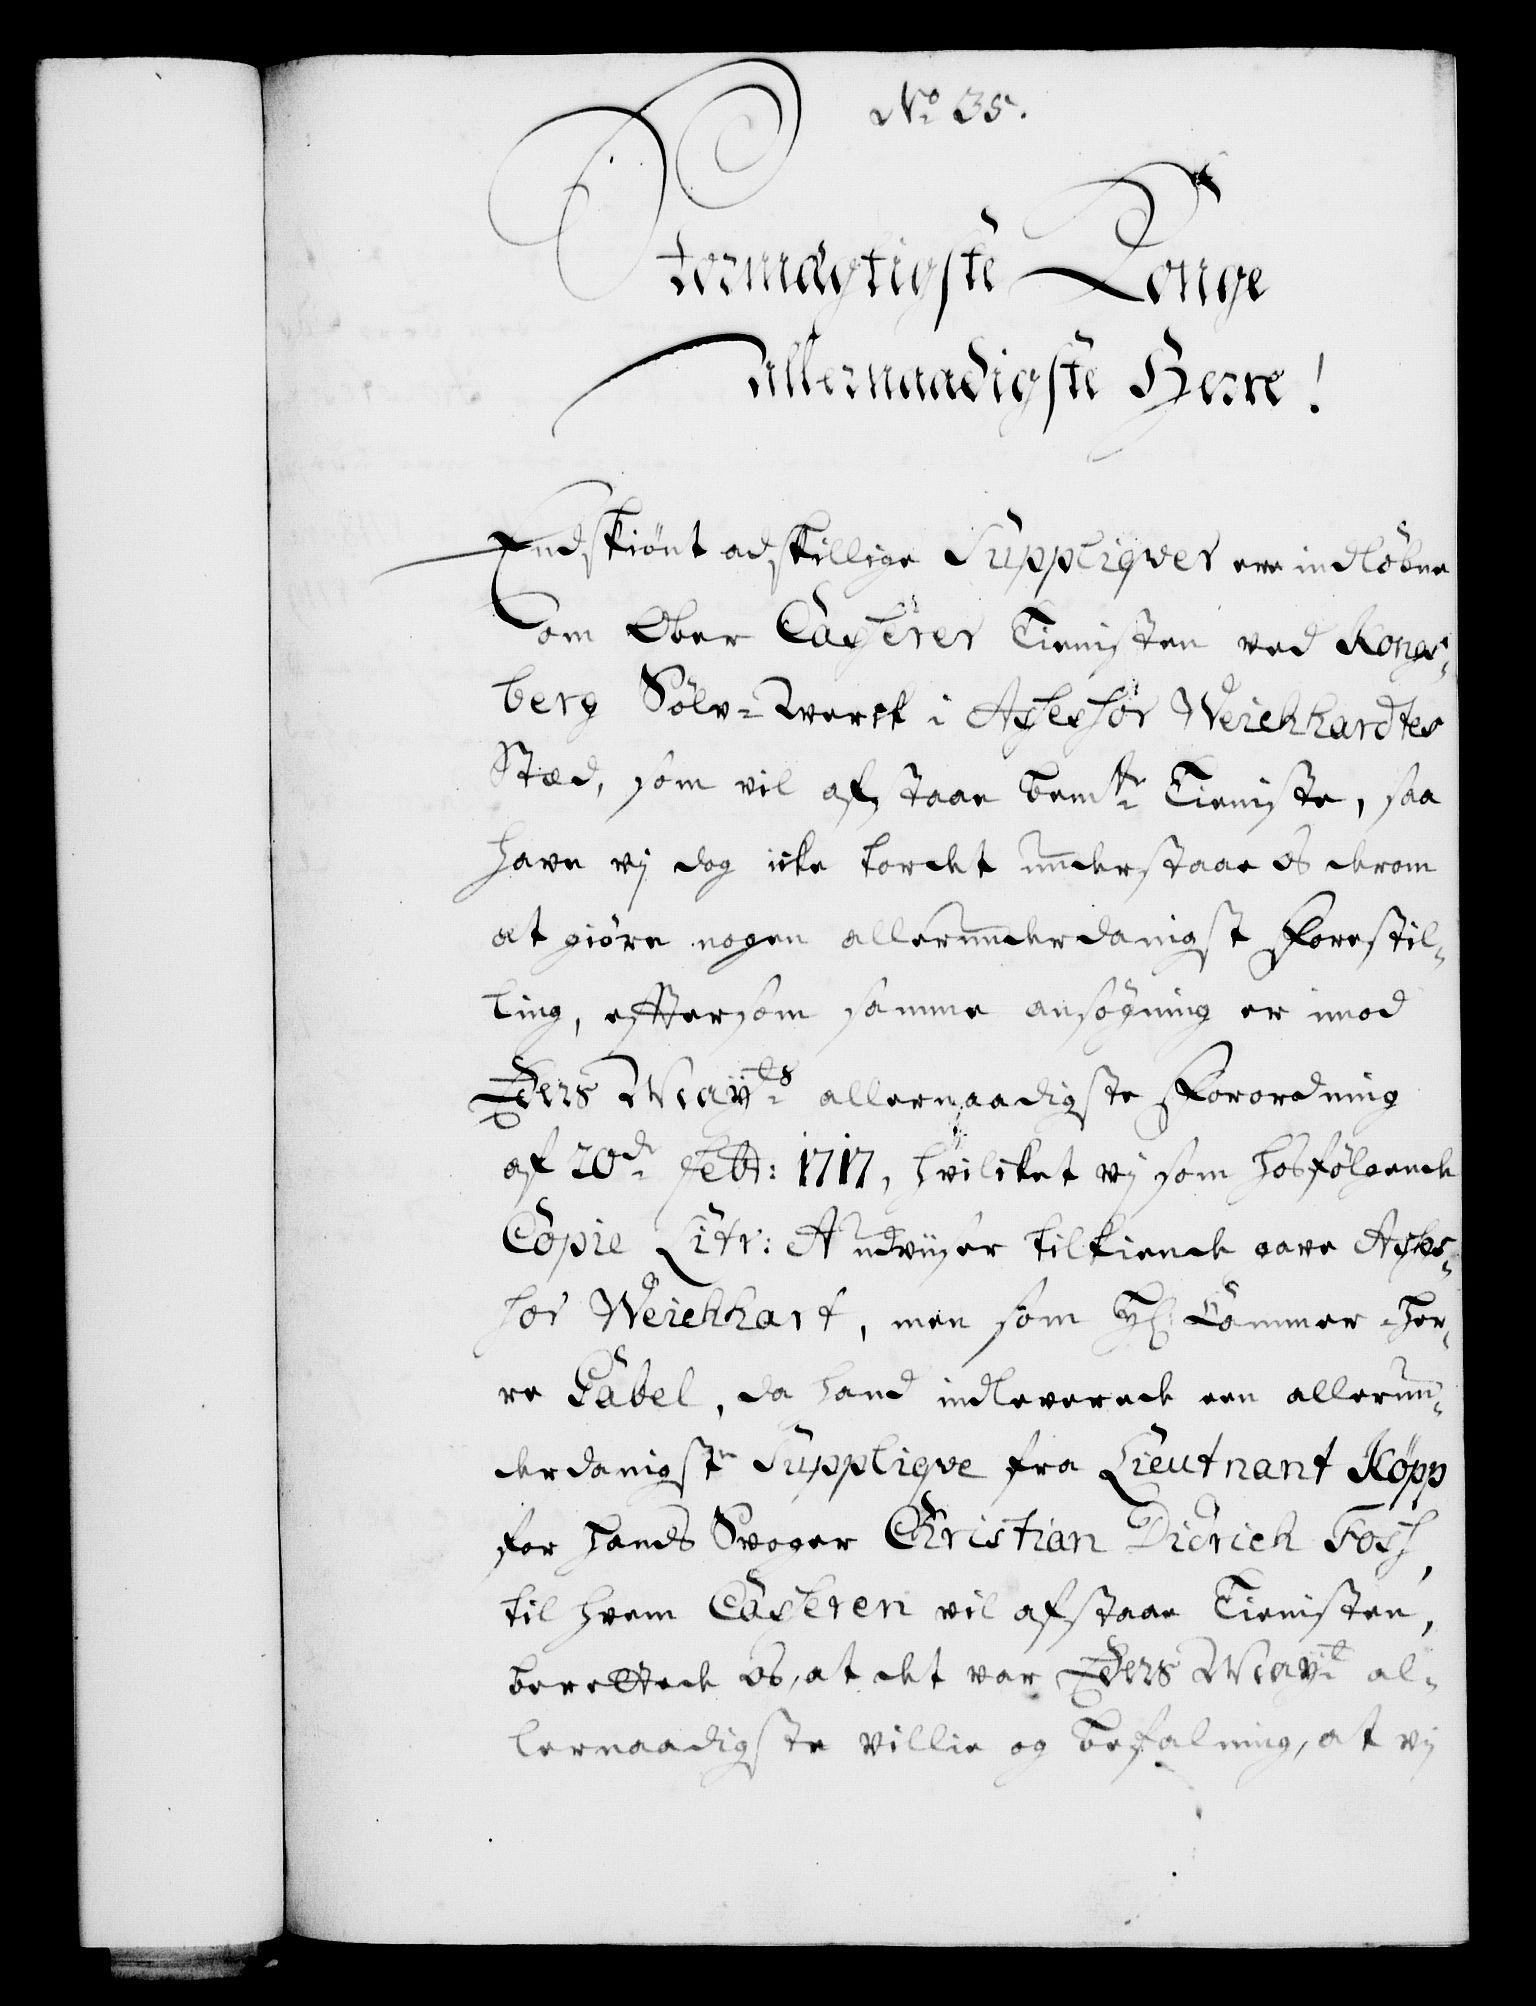 No 35.
Stormægtigste Konge
allernaadigste Herre!
Endskiönt adskillige Suppliqver ere indløbne
om Ober Casserer Tienisten ved Kongs-
berg Sölv-Werck i Assessor Weichhardtes
Stæd, som vil afstaae bemte Tieniste, saa
have vy dog icke tordet understaae os derom
at giöre nogen allerunderdanigst Forestil-
ling, efftersom samme ansögning er imod
Eders Mayts allernaadigste Forordning
af 20de Febr: 1717, hvilcket vy som hosfölgende
Copie Litr: A udviiser tilkiende gave Asses-
sor Weichhart, men som Hr Cammer Her-
re Gabel, da hand indleverede een allerun-
derdanigste Supplique fra Lieutnant Köpp
for hands Svoger Christian Didrich Foss,
til hvem Casseren vil afstaae Tienisten,
berettede os, at det var Eders Mayts al-
lernaadigste villie og befalning, at vy